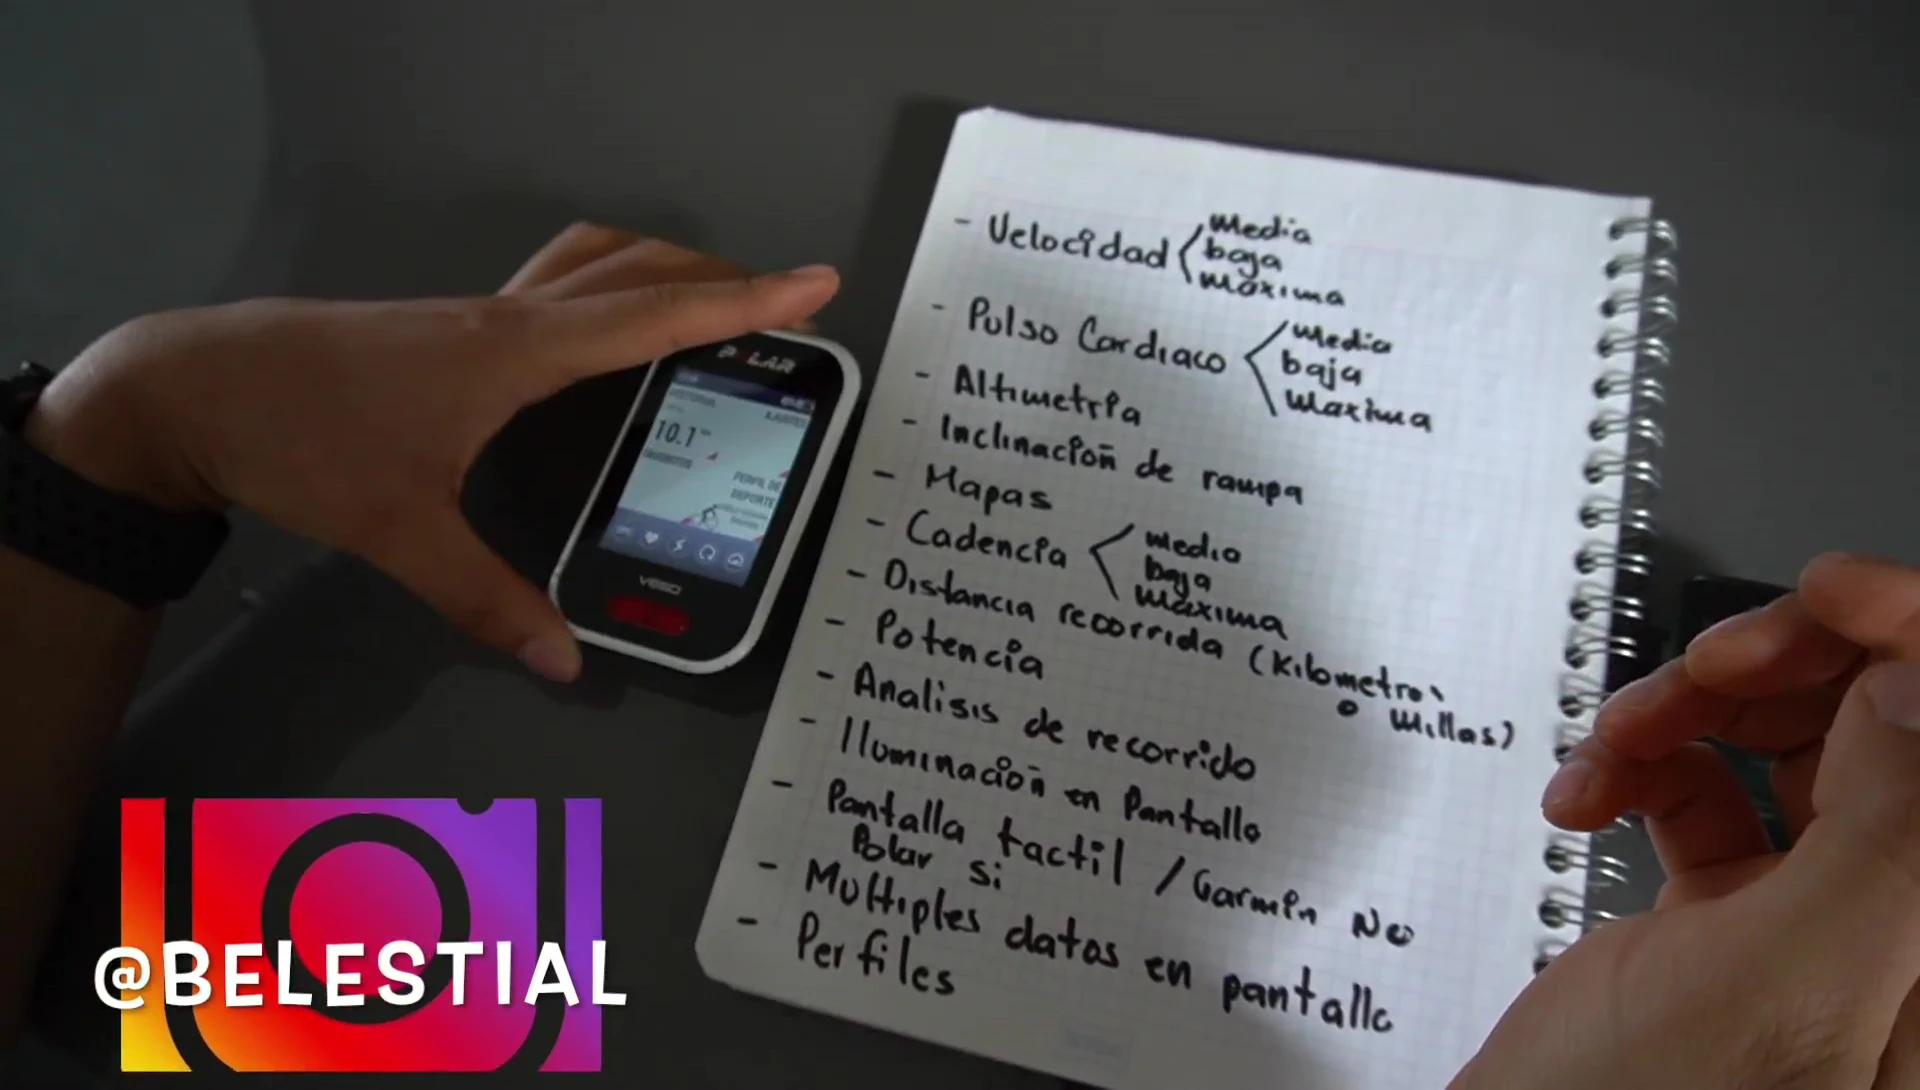 POLAR
HISTORIAL
AJUSTES
10.1
FAVORITOS
PERFIL DE
DEPORTE
V650
- Velocidad
media
baja
máxima
- Pulso Cardiaco
media
baja
maxima
- Altimetría
- Inclinación de rampa
- Mapas
- Cadencia
media
baja
máxima
- Distancia recorrida (Kilometros
o millas)
- Potencia
- Analisis de recorrido
- Iluminación en Pantalla
- Pantalla tactil / Garmin No
Polar si
- Multiples datos en pantalla
- Perfiles
@BELESTIAL